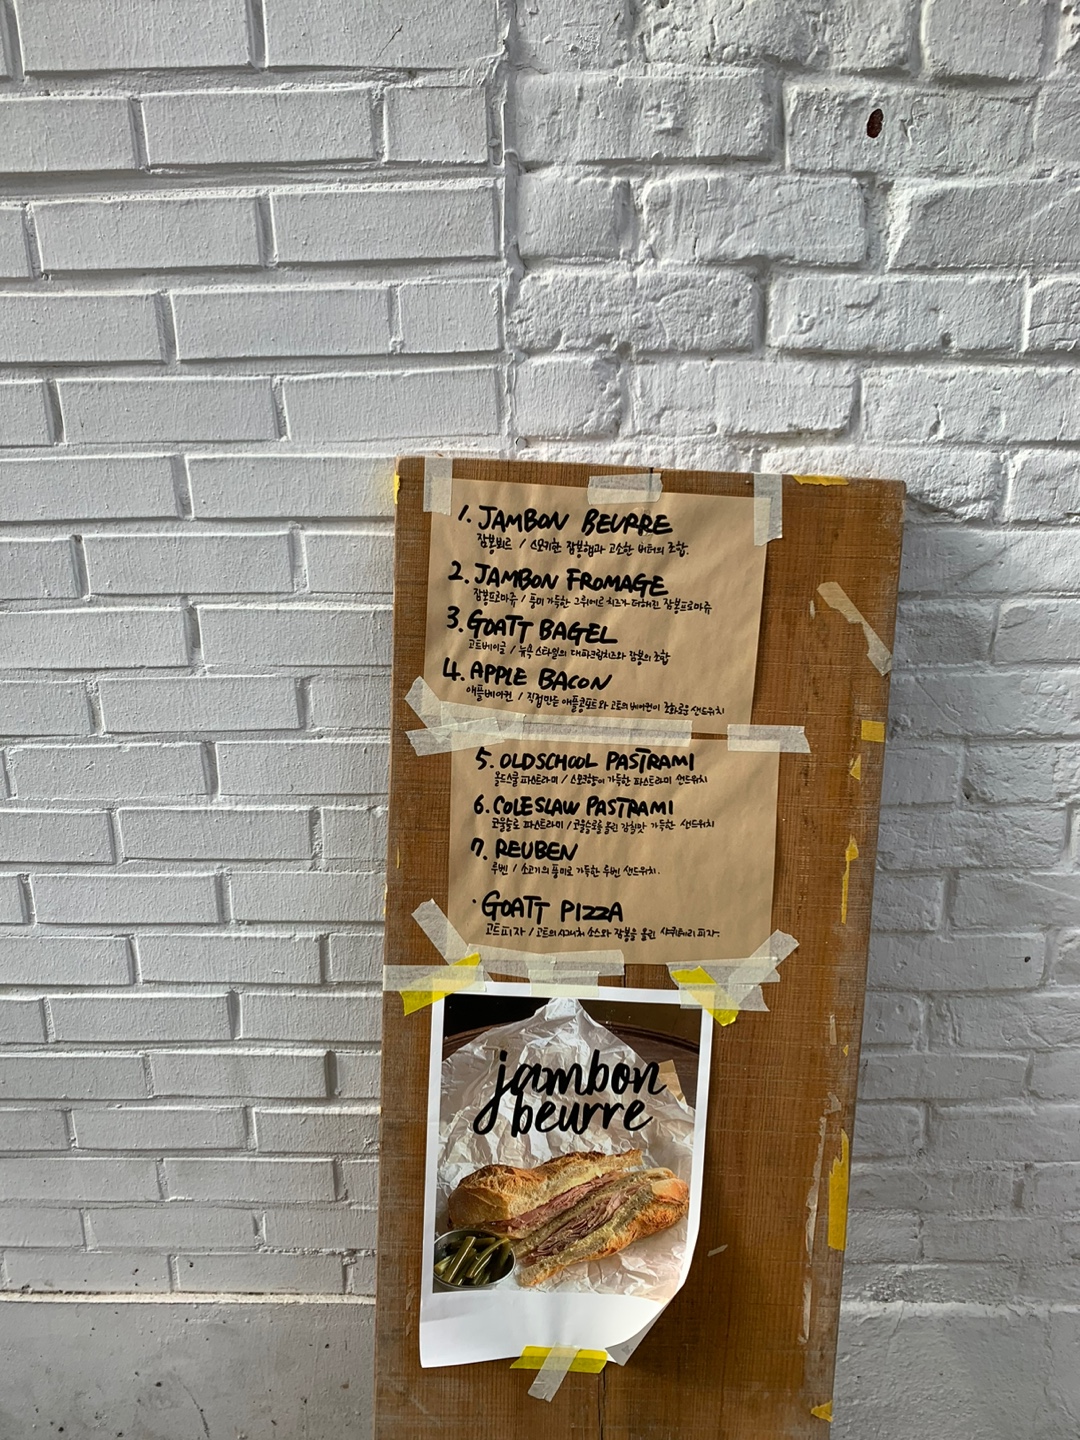 1. JAMBON BEURRE
잠봉뵈르 / 스모키한 잠봉햄과 고소한 버터의 조합.
2. JAMBON FROMAGE
잠봉프로마쥬 / 풍미 가득한 그뤼에르 치즈가 더해진 잠봉프로마쥬
3. GOATT BAGEL
고트베이글 / 뉴욕 스타일의 대파크림치즈와 잠봉의 조합
4. APPLE BACON
애플베이컨 / 직접만든 애플콩포트와 고트의 베이컨이 조화로운 샌드위치
5. OLDSCHOOL PASTRAMI
올드스쿨 파스트라미 / 스모크향이 가득한 파스트라미 샌드위치
6. COLESLAW PASTRAMI
코울슬로 파스트라미 / 코울슬로를 올린 감칠맛 가득한 샌드위치
7. REUBEN
루벤 / 소고기의 풍미로 가득한 루벤 샌드위치.
· GOATT PIZZA
고트피자 / 고트의 시그니처 소스와 잠봉을 올린 샤퀴테리 피자.
jambon
beurre